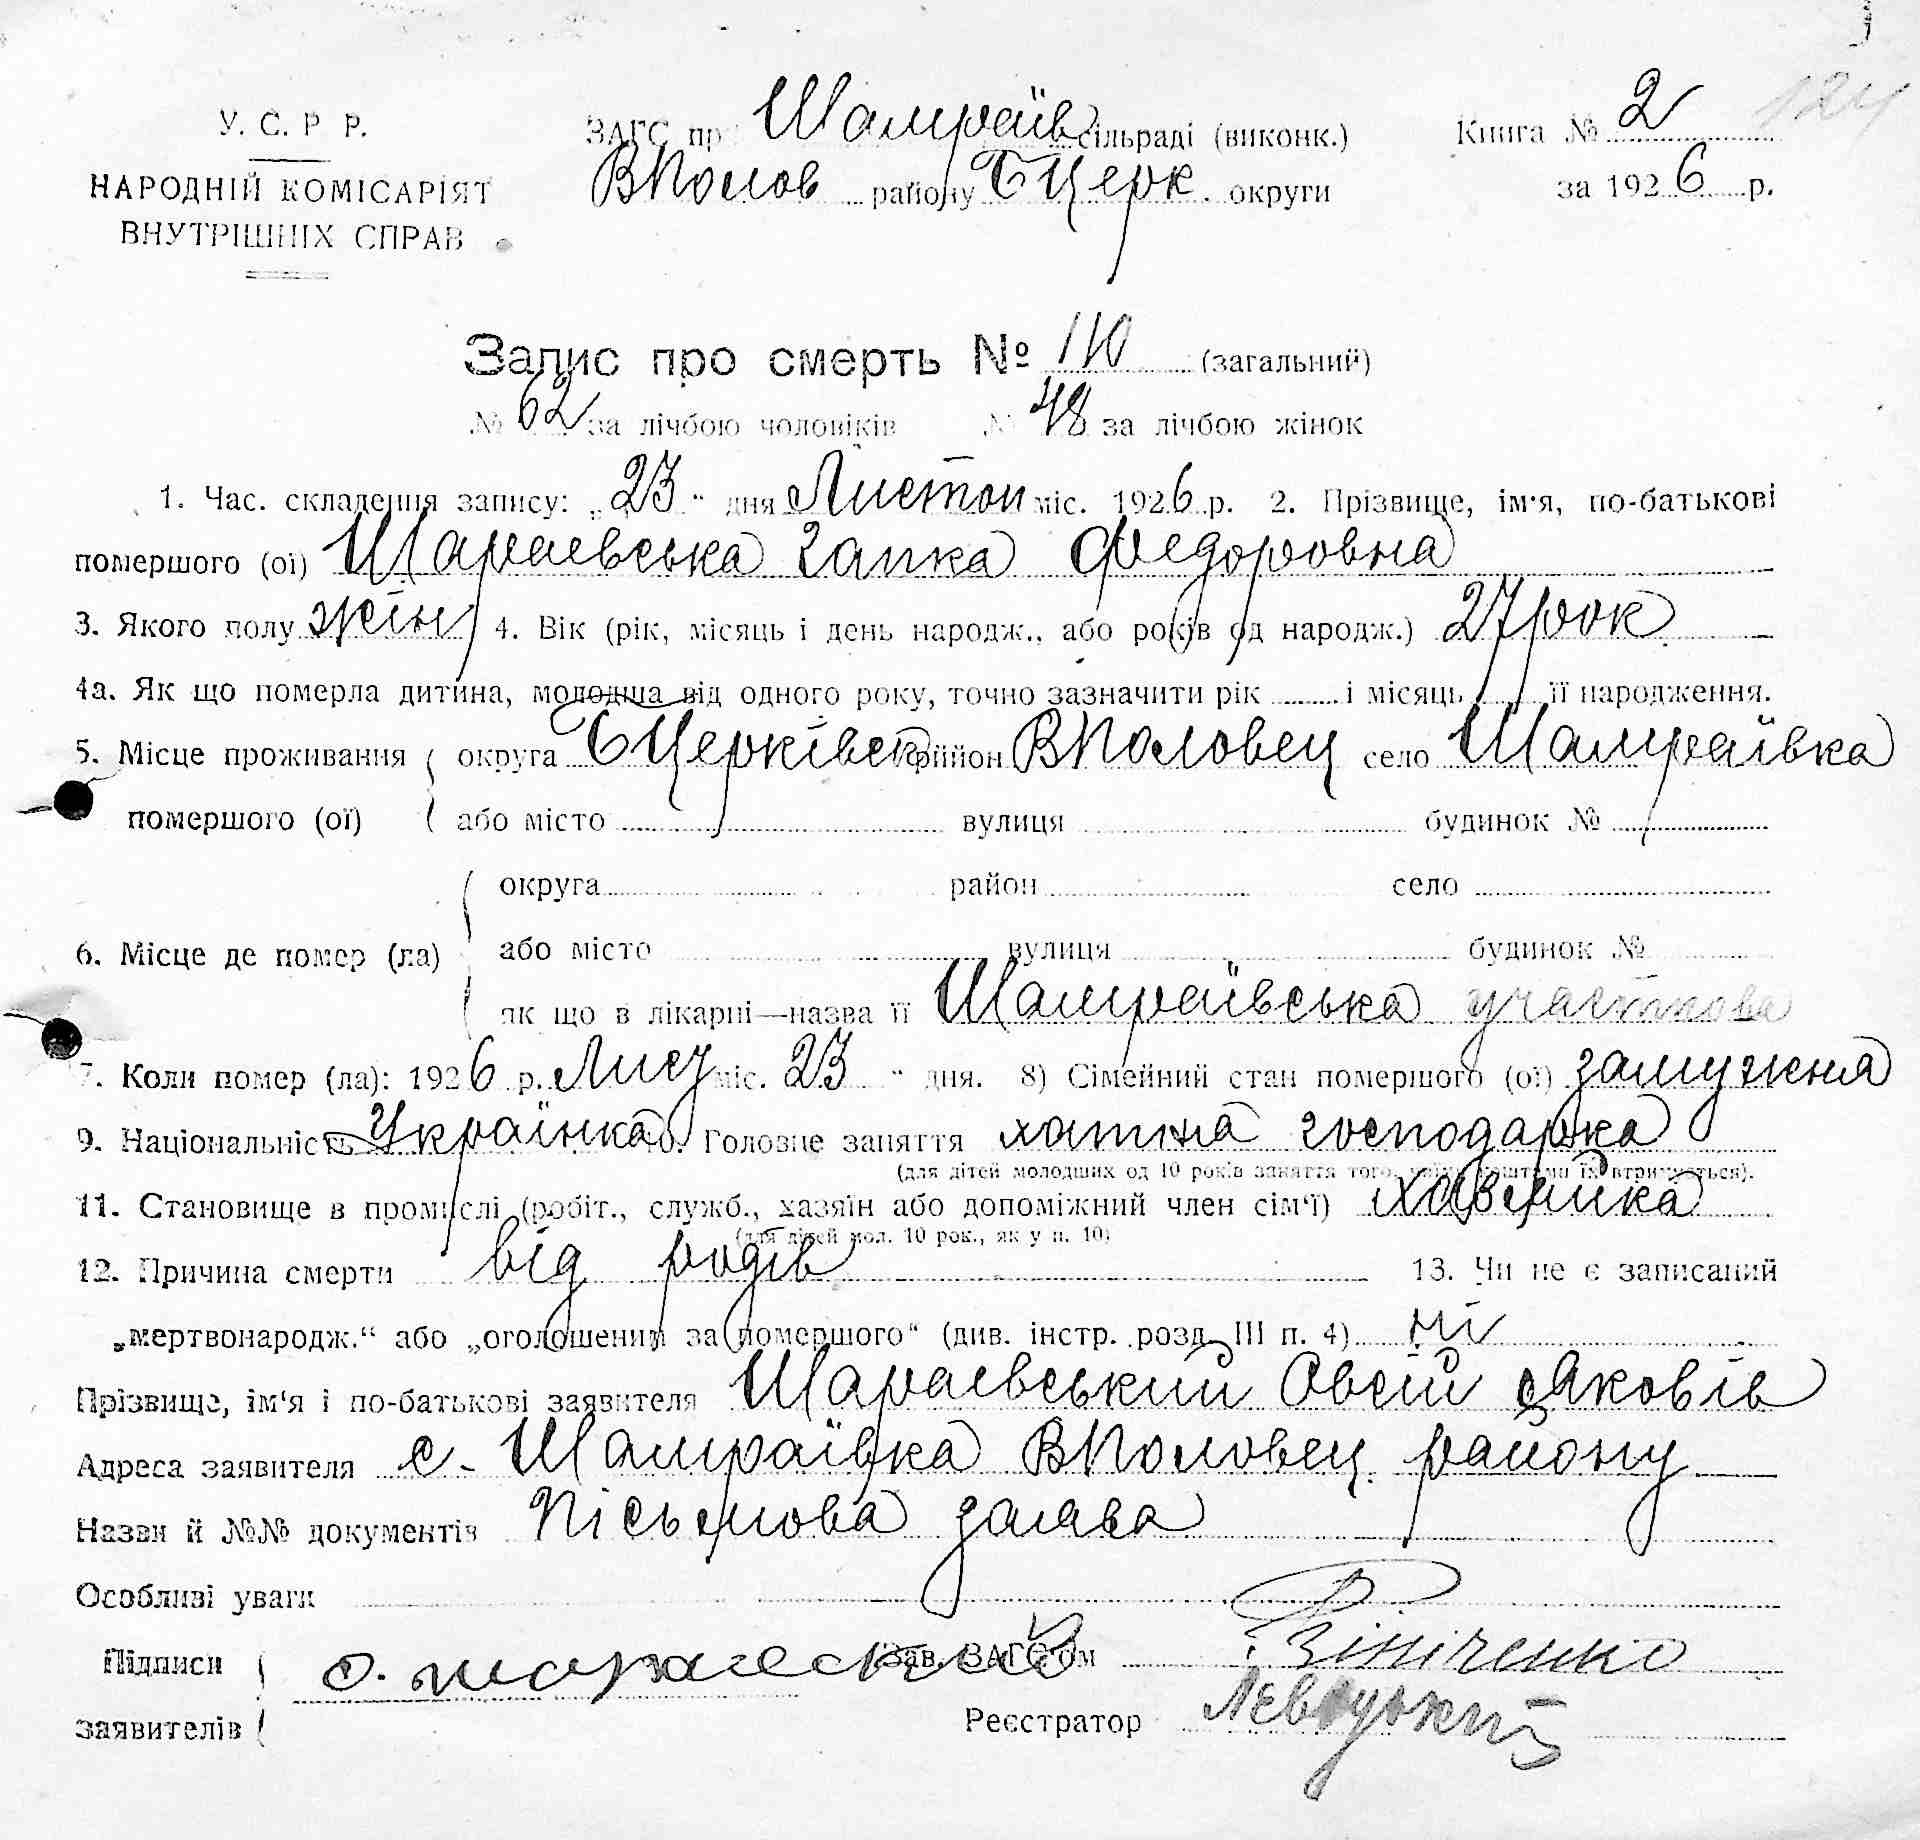 124
У. С. Р Р.
НАРОДНІЙ КОМІСАРІЯТ
ВНУТРІШНІХ СПРАВ
ЗАГС пр Шамраїв сільраді (виконк.)
ВПолов району БЦерк. округи
Книга № 2
за 1926 р.
Запис про смерть № 110 (загальний)
№ 62 за лічбою чоловіків № 48 за лічбою жінок
1. Час. складення запису: „23“ дня Листоп міс. 1926 р. 2. Прізвище, ім'я, по-батькові
помершого (ої) Шараевська Гапка Федоровна
3. Якого полу жін 4. Вік (рік, місяць і день народж., або років од народж.) 27 рок
4а. Як що померла дитина, молодша від одного року, точно зазначити рік і місяць її народження.
5. Місце проживання округа БЦерківск район ВПоловец село Шамраївка
помершого (ої) або місто вулиця будинок №
округа район село
6. Місце де помер (ла) або місто вулиця будинок №
як що в лікарні—назва її Шамраївська участкова
7. Коли помер (ла): 1926 р. Лист міс. 23 " дня. 8) Сімейний стан помершого (ої) замужня
9. Національність Українка 10. Головне заняття хатна господарка
(для дітей молодших од 10 років заняття того, чиїми коштами їх втримується).
11. Становище в промислі (робіт., служб., хазяїн або допоміжний член сім'ї) хазяйка
(для дітей мол. 10 рок., як у п. 10)
12. Причина смерти від родів 13. Чи не є записаний
„мертвонародж.“ або „оголошеним за помершого“ (див. інстр. розд. III п. 4) ні
Прізвище, ім'я і по-батькові заявителя Шараевський Овсій Яковів
Адреса заявителя с. Шамраївка ВПоловец. району
Назви й №№ документів Пісьмова заява
Особливі уваги
Підписи
заявителів
о. шараеский
Зав. ЗАГС'ом Вініченко
Реєстратор